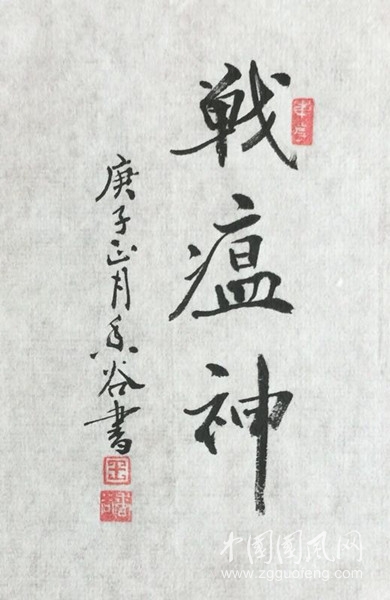 戦瘟神
庚子正月香谷書
中国国风网
www.zgguofeng.com